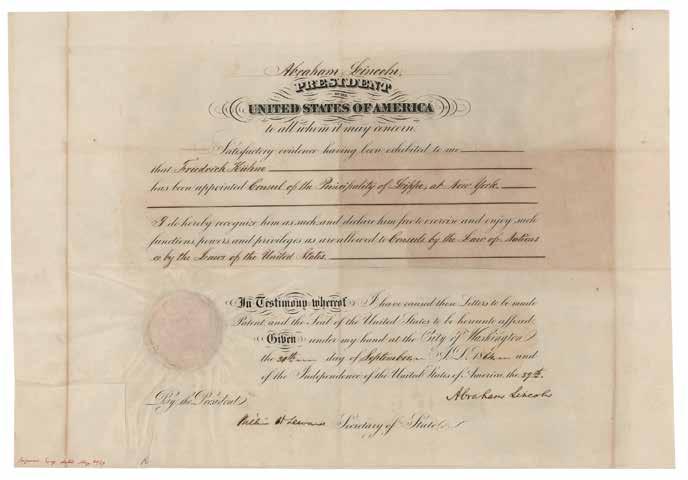 Abraham Lincoln,
PRESIDENT
OF THE
UNITED STATES OF AMERICA
to all whom it may concern.
Satisfactory evidence having been exhibited to me
that Friedrich Kühne
has been appointed Consul of the Principality of Lippe, at New York.
I do hereby recognize him as such, and declare him free to exercise and enjoy such
functions, powers and privileges as are allowed to Consuls by the Law of Nations
or by the Laws of the United States.
In Testimony whereof I have caused these Letters to be made
Patent, and the Seal of the United States to be hereunto affixed.
Given under my hand at the City of Washington
the day of September A.D. and
of the Independence of the United States of America, the
Abraham Lincoln
By the President
William H Seward Secretary of State